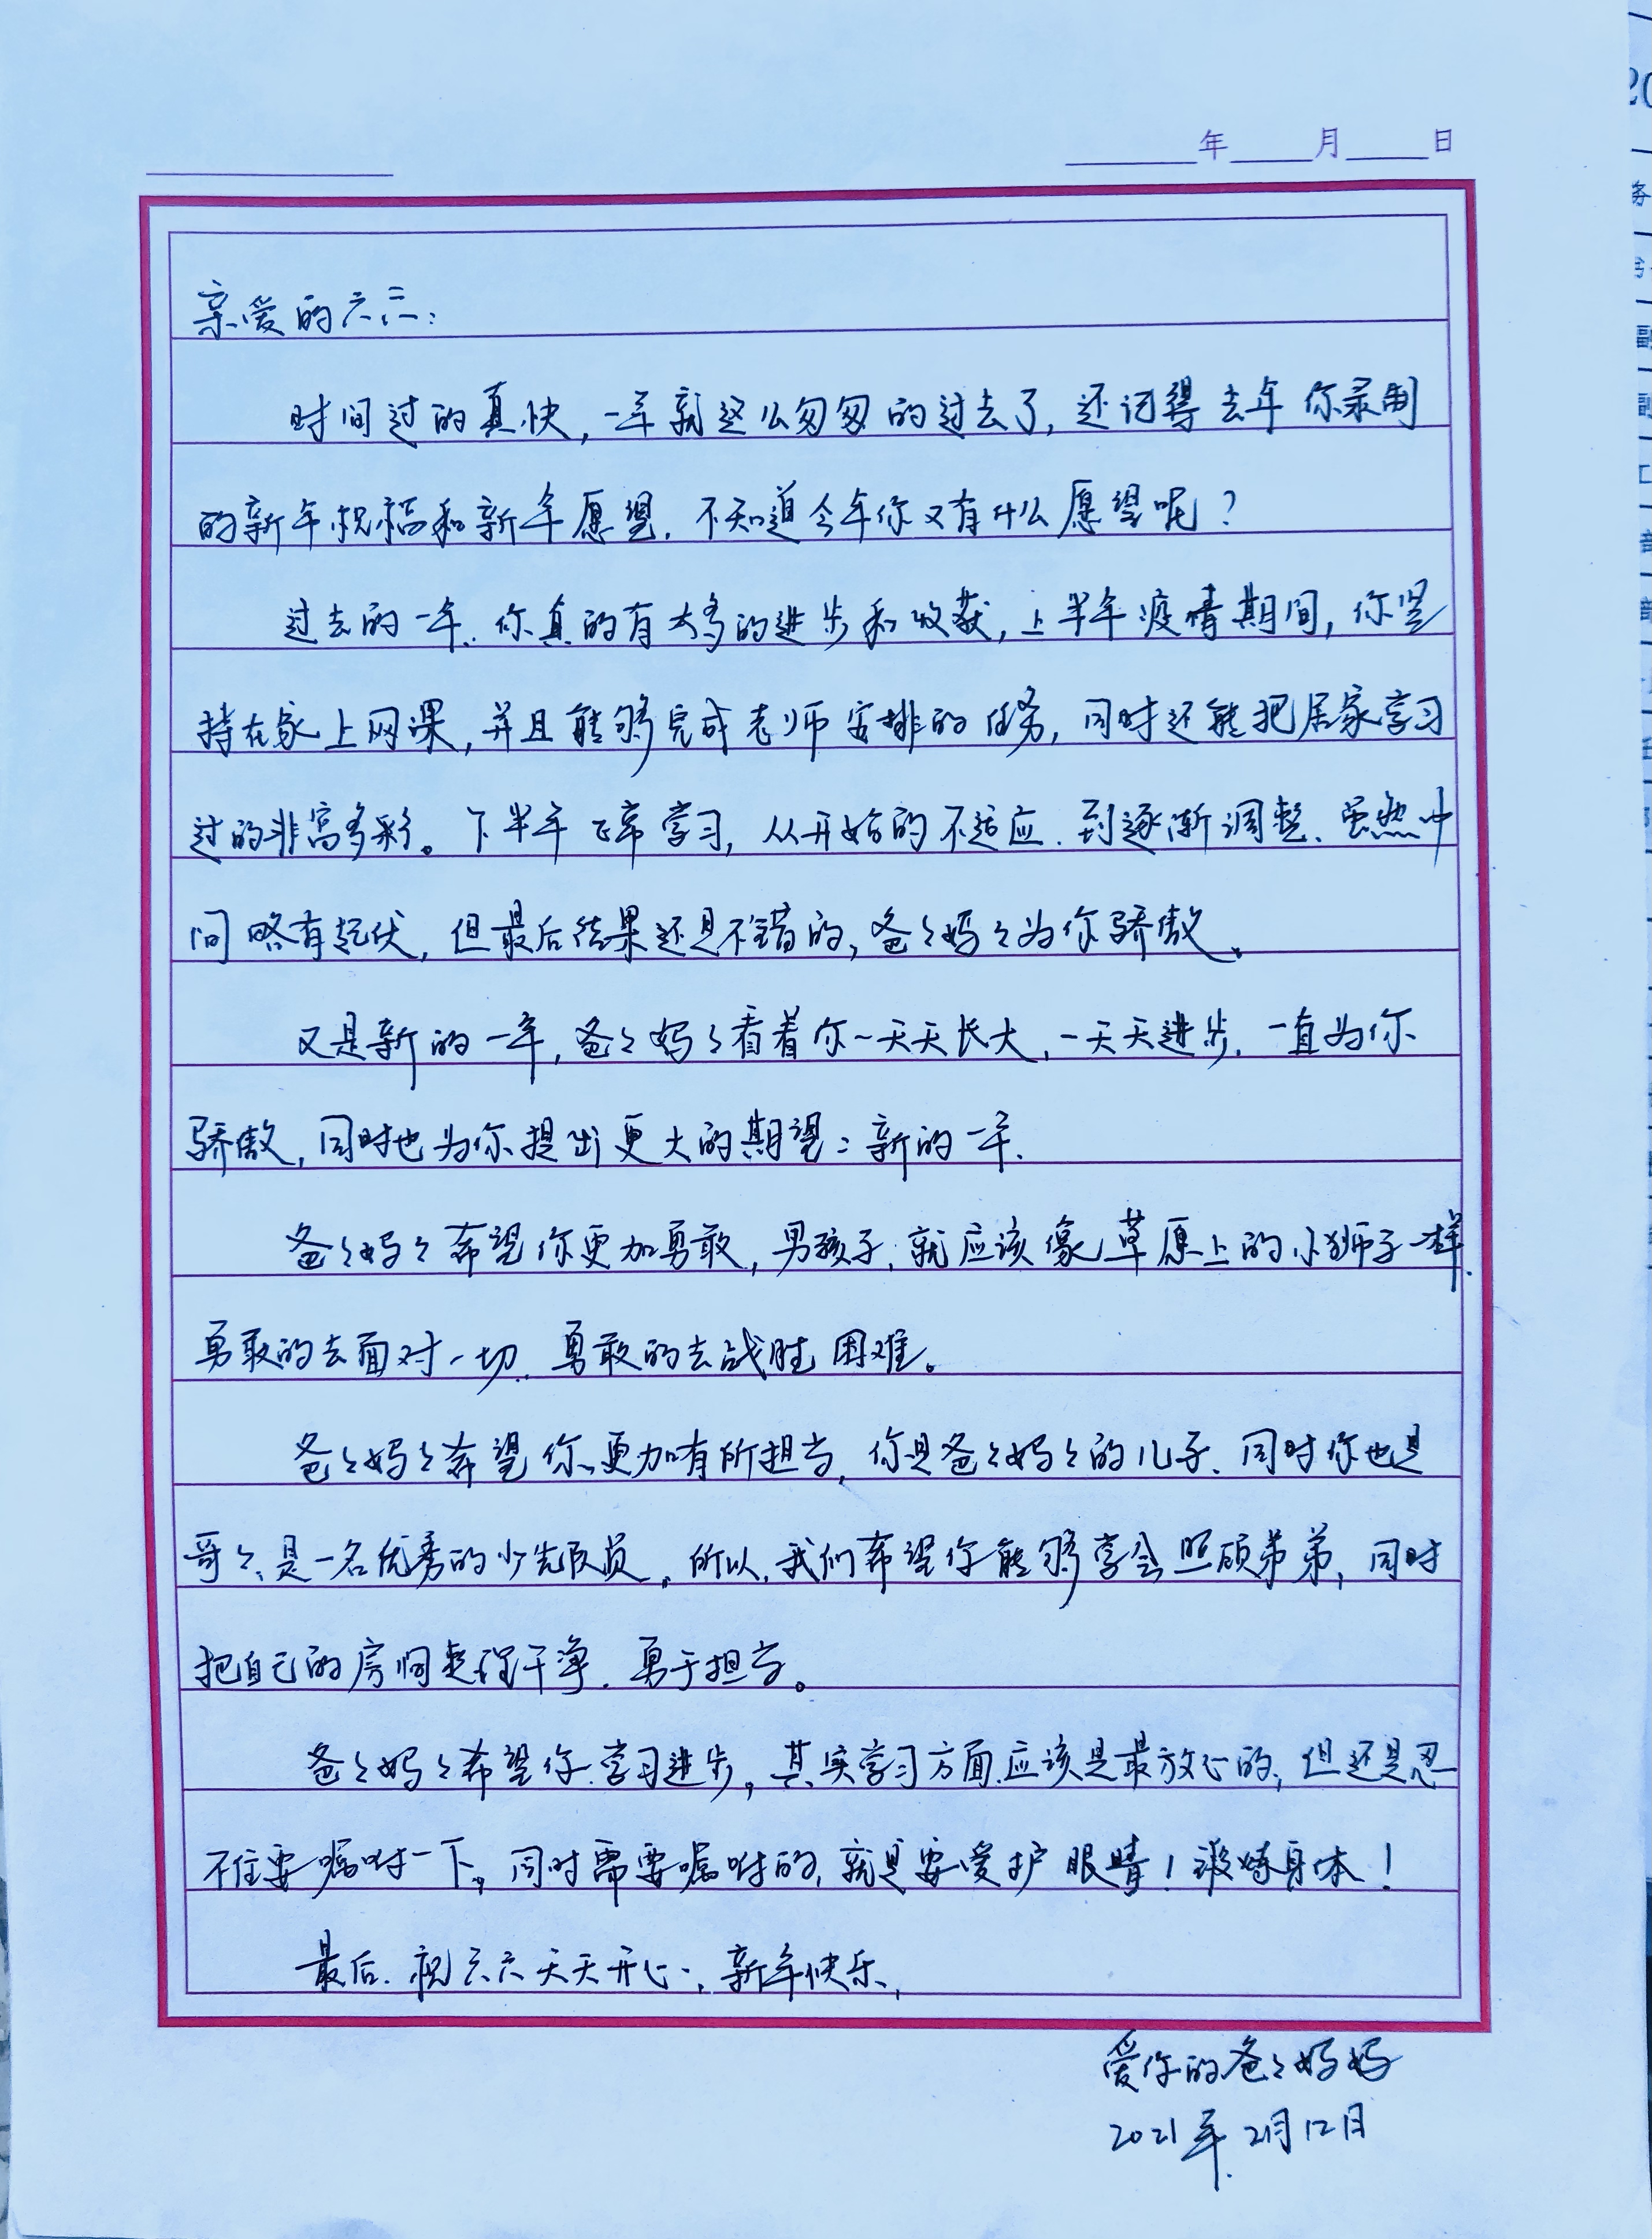 年 月 日
亲爱的六六:
时间过的真快,一年就这么匆匆的过去了,还记得去年你录制
的新年祝福和新年愿望,不知道今年你又有什么愿望呢?
过去的一年,你真的有太多的进步和收获,上半年疫情期间,你坚
持在家上网课,并且能够完成老师安排的任务,同时还能把居家学习
过的非富多彩。下半年正常学习,从开始的不适应,到逐渐调整,虽然中
间略有起伏,但最后结果还是不错的,爸々妈々为你骄傲。
又是新的一年,爸々妈々看着你一天天长大,一天天进步,一直为你
骄傲,同时也为你提出更大的期望:新的一年,
爸々妈々希望你更加勇敢,男孩子,就应该像草原上的小狮子一样,
勇敢的去面对一切,勇敢的去战胜困难。
爸々妈々希望你更加有所担当,你是爸々妈々的儿子,同时你也是
哥々,是一名优秀的少先队员。所以,我们希望你能够学会照顾弟弟,同时
把自己的房间整理干净,勇于担当。
爸々妈々希望你学习进步。其实学习方面应该是最放心的,但还是忍
不住要嘱咐一下。同时需要嘱咐的,就是要爱护眼睛!锻炼身体!
最后,祝六六天天开心,新年快乐,
爱你的爸々妈妈
2021年2月12日